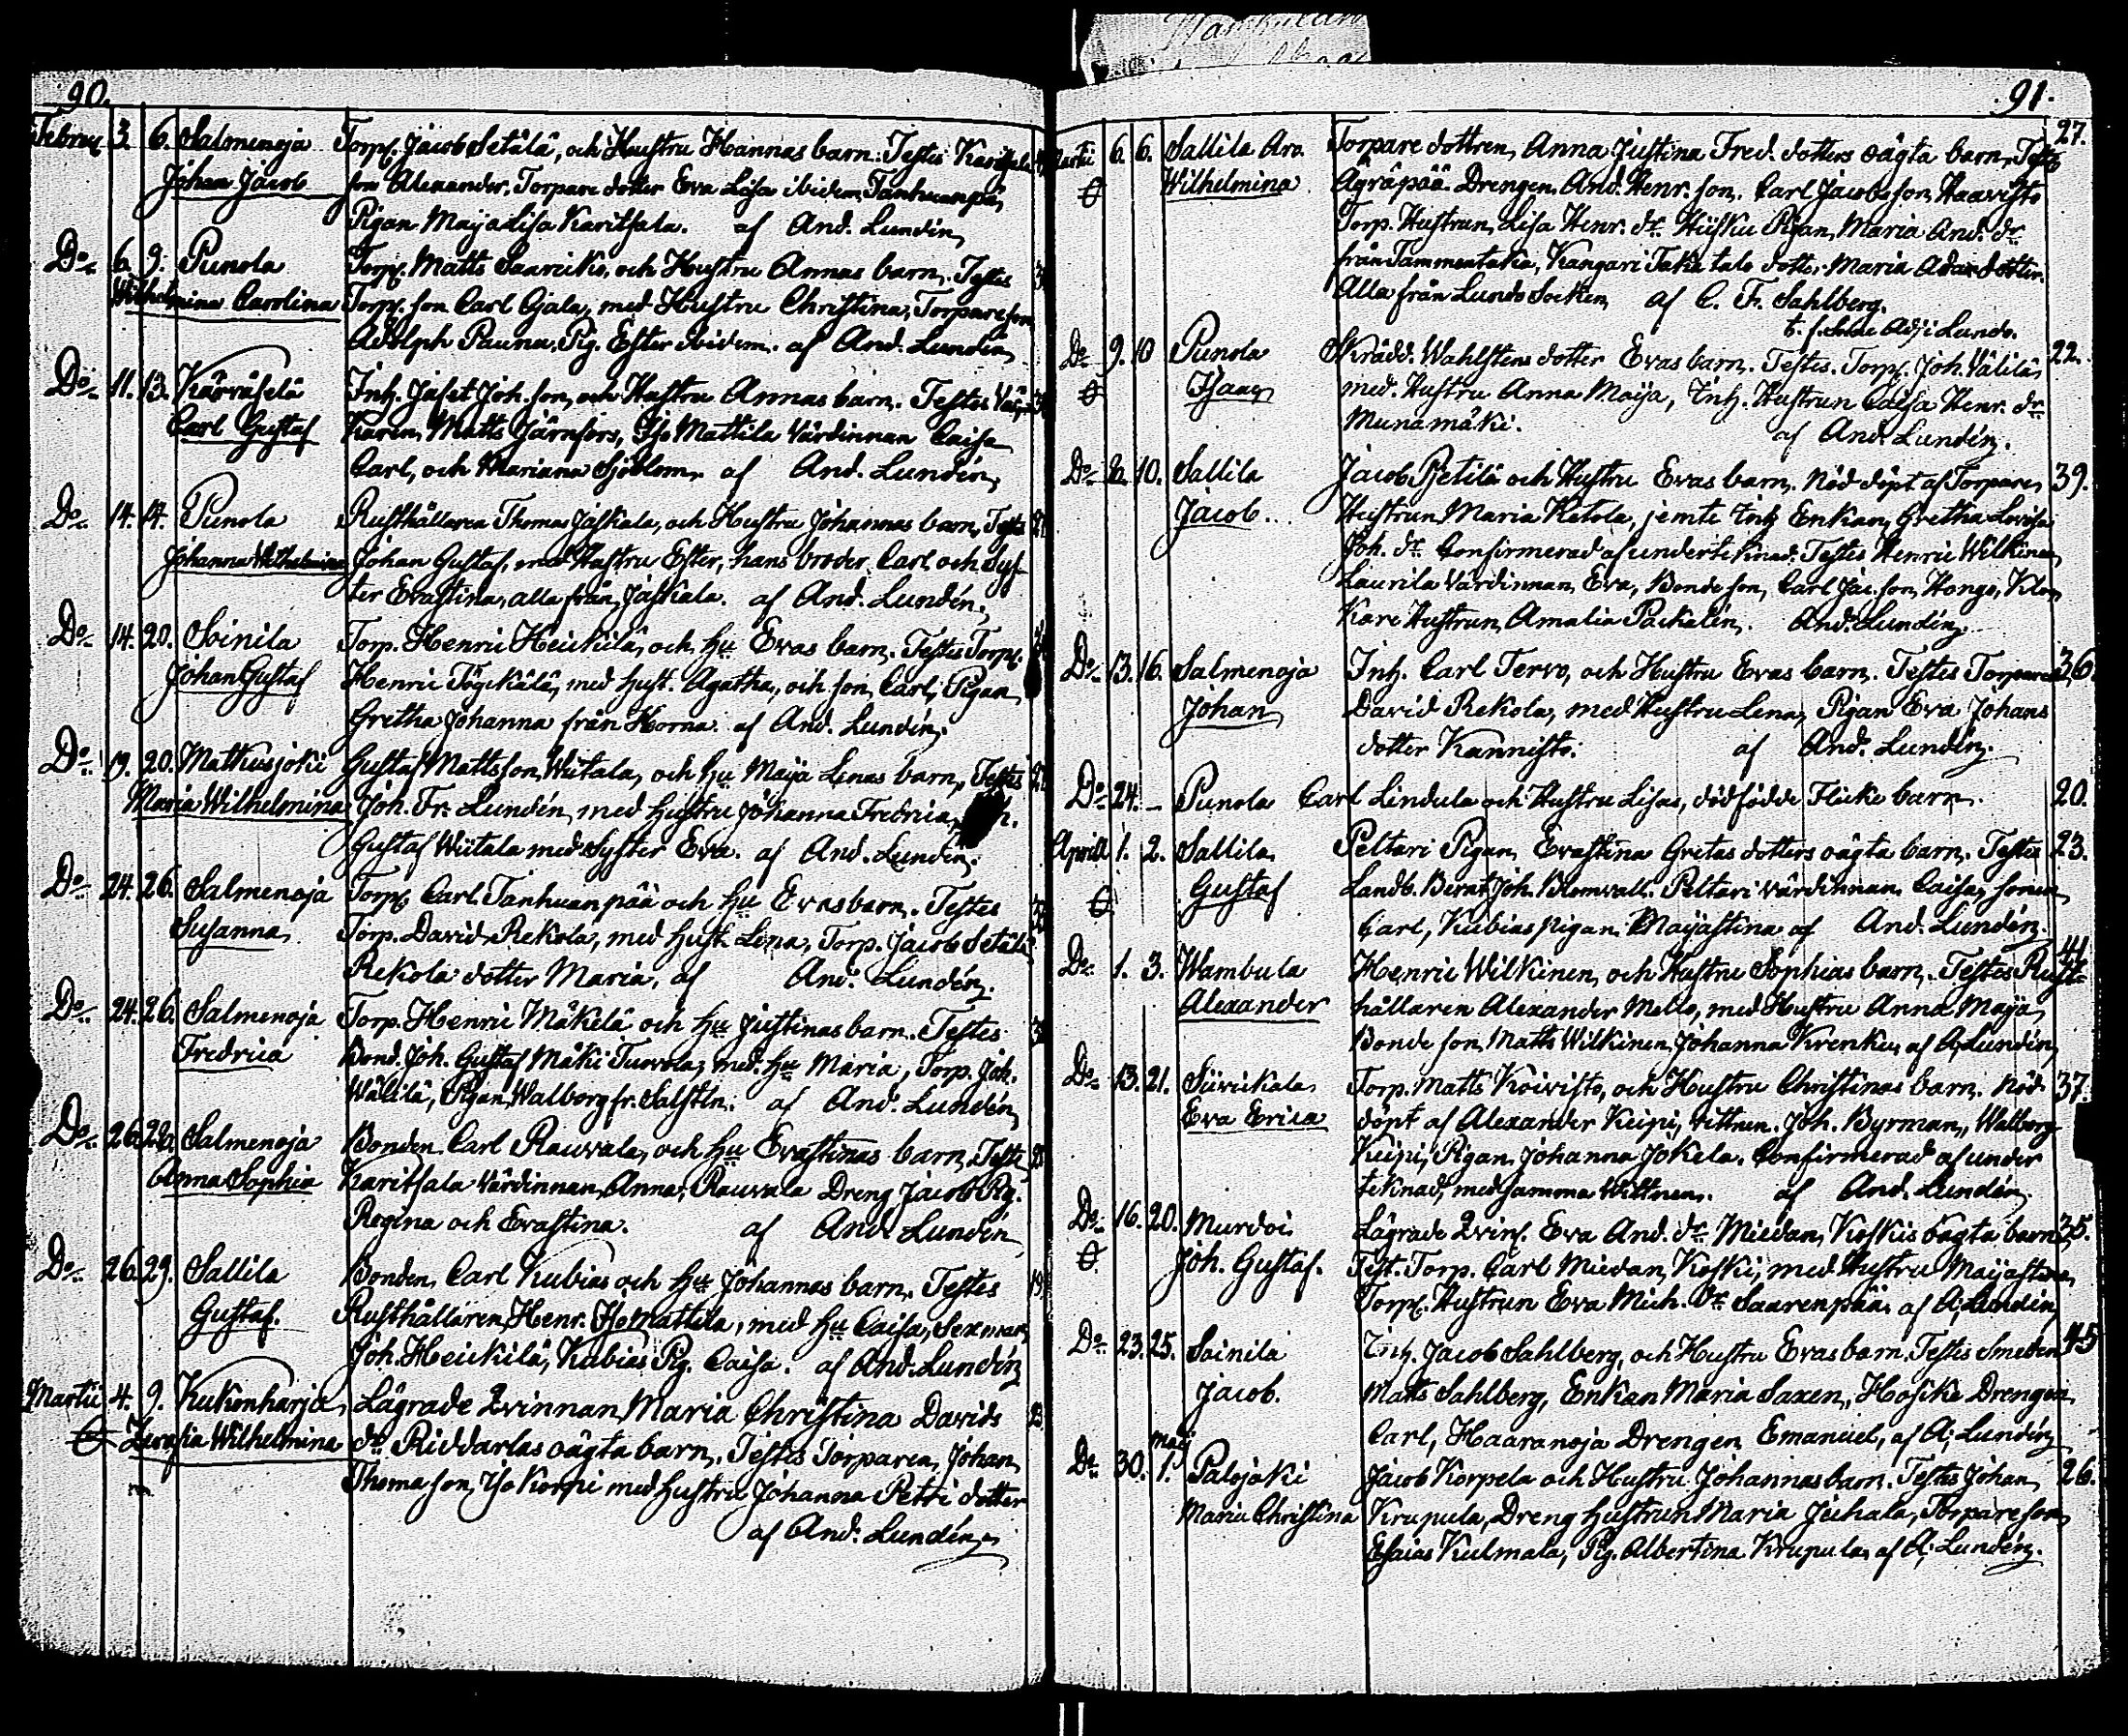 90.
Februq 3. 6. Salmenoja Torpq. Jacob Setälä, och Hustru Hannas barn. Testes Karitsala
Johan Jacob son Alexander, Torpare dotter Eva Lisa ibidem, Tanhuanpää
Pigan Maja Lisa Karitsala. af And. Lundén
Do 6. 9. Punola Torpq. Matts Saaricko, och Hustru Annas barn. Testes
Wilhelmina Carolina Torpq. son Carl Ojala, med Hustru Christina, Torpare son
Adolph Pauna, Pig. Ester ibidem. af And. Lundén
Do 11. 13. Kärräselä Inh. Jafet Joh. son, och Hustru Annas barn. Testes
Carl Gustaf Karen, Matts Järnfors, Iso Mattila Värdinnan Caisa
Carl, och Mariana Sjöblom, af And. Lundén,
Do 14. 14. Punola Rusthållaren Thomas Jaskala, och Hustru Johannas barn, Testes
Johanna Wilhelmina Johan Gustaf, med Hustru Ester, hans broder Carl och Sys-
ter Evastina, alla från Jaskala. af And. Lundén,
Do 14. 20. Soinila Torp. Henric Heickilä, och Hu Evas barn. Testes Torpq.
Johan Gustaf Henric Töyckälä, med Hust. Agatha, och son Carl, Pigan
Gretha Johanna från Horna. af And. Lundén,
Do 19. 20. Mathusjoki Gustaf Mattsson Wiitala, och Hu Maja Lenas barn, Testes
Maria Wilhelmina Joh. Fr. Lundén, med Hustru Johanna Fredrica,
Gustaf Wiitala med Syster Eva. af And. Lundén,
Do 24. 26. Salmenoja Torpq. Carl Tanhuanpää och Hu Evas barn. Testes
Susanna. Torp. David Rekola, med Hust. Lena, Torp. Jacob Setälä
Rekola dotter Maria, af And. Lundén.
Do 24. 26. Salmenoja Torp. Henric Mäkelä och Hu Justinas barn. Testes
Fredrica Bond. Joh. Gustaf Mäki Tuovola, med Hu Maria, Torp. Joh.
Wälilä, Pigan Walborg fr. Salstln. af And. Lundén
Do 26. 28. Salmenoja Bonden Carl Rauvala, och Hu Evastinas barn, Testes
Anna Sophia Karitsala Värdinnan, Anna, Rauvala Dreng Jacob Pig.
Regina och Evastina. af And. Lundén
Do 26. 29. Sallila Bonden Carl Kubias och Hu Johannas barn. Testes
Gustaf. Rusthållaren Henr. Iso Mattila, med Hu Caisa, Sexman
Joh. Heickilä, Kubias Pig. Caisa. af And. Lundén
Martii 4. 9. Kukonharja Lägrade Qvinnan Maria Christina Davids
Wilhelmina dr. Riddarlas oägta barn, Testes Torparen, Johan
Thomasson, Iso Korpi med Hustru Johanna Petri dotter
af And. Lundén,
91.
Martii 6. 6. Sallila Aro. Torpare dottren, Anna Justina Fred. dotters oägta barn, Testes 27.
Wilhelmina Ägräpää Drengen And. Henr. son. Carl Jacobsson Haavisto
Torp. Hustrun, Lisa Henr. dr. Huisku Pigan, Maria And. dr.
från Tammentaka, Kangari Taka talo dotter Maria Adam dotter.
Alla från Lundo Socken, af C. Fr. Sahlberg.
Adj i Lundo.
Do 9. 10 Punola Skrädd. Wahlstens dotter Evas barn. Testes. Torpq. Joh. Wälilä, 22.
Isaac med Hustru Anna Maja, Inh. Hustrun Caisa Henr. dr.
Munamäki. af And. Lundén.
Do 8. 10. Sallila Jacob Pietilä och Hustru Evas barn. Nöd döpt af Torpare 39.
Jacob. Hustrun Maria Ketola, jemte Inh. Enkan, Gretha Lovisa
Joh. dr. Confirmerad af underteknad: Testes Henric Wilkinen
Laurila Värdinnan Eva, Bonde son, Carl Jac. son, Hongo, Klac
Kare Hustrun Amalia Packalén. And. Lundén,
Do 13. 16. Salmenoja Inh. Carl Tervo, och Hustru Evas barn. Testes Torparen 36.
Johan David Rekola, med Hustru Lena, Pigan Eva Johans
dotter Kannisto. af And. Lundén.
Do 24. – Punola Carl Lindula och Hustru Lisas, dödfödde Flicke barn. 20.
Aprill 1. 2. Sallila Peltari Pigan Evastina Gretas dotters oägta barn. Testes 23.
Gustaf Landb. Bernt Joh. Blomvall. Peltari värdinnan Caisa, sonen
Carl, Kubias pigan Majastina af And. Lundén.
Do 1. 3. Wambula Henric Wilkinen, och Hustru Sophias barn. Testes Rust- 41.
Alexander hållaren Alexander Mello, med Hustru Anna Maja,
Bonde son Matts Wilkinen, Johanna Krenku, af A; Lundén
Do 13. 21. Siivickala Torp. Matts Koivisto, och Hustru Christinas barn. Nöd 37.
Eva Erica döpt af Alexander Keipi, vittnen. Joh. Byrman, Walborg
Keipi, Pigan Johanna Jokela. Confirmerad af under
teknad, med samma Wittnen. af And. Lundén.
Do 16. 20. Murdoi Lägrade Qvinf. Eva And. dr. Miedan, Koskis oägta barn 35.
Joh. Gustaf. Test. Torp. Carl Miedan, Koski, med Hustru Majastina,
Torpq. Hustrun Eva Mich. dr. Saarenpää af A; Lundén
Do 23. 25. Soinila Inh. Jacob Sahlberg, och Hustru Evas barn, Testes Smeden 45
Jacob. Matts Sahlberg, Enkan Maria Saxen, Hosike Drengen
Carl, Haaranoja Drengen Emanuel, af A; Lundén
Do 30. Maij 1. Palojoki Jacob Korpela och Hustru Johannas barn. Testes Johan 26.
Maria Christina Krupula, Dreng Hustrun Maria Juhala, Torpare son
Esaias Kulmala, Pig. Albertina Krupula af A; Lundén.